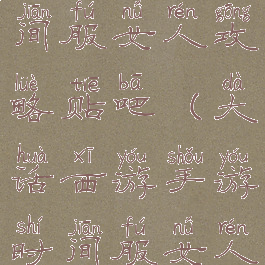 jiān fú nǚ rén gōng
间服女人攻
lüè tiē bā dà
略贴吧(大
huà xī yóu shǒu yóu
话西游手游
shí jiān fú nǚ rén
时间服女人